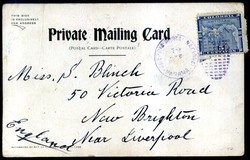 THIS SIDE
IS EXCLUSIVELY
FOR ADDRESS
Private Mailing Card
(POSTAL CARD—CARTE POSTALE)
Miss. S. Blinch
50 Victoria Road
New Brighton
Near Liverpool
England